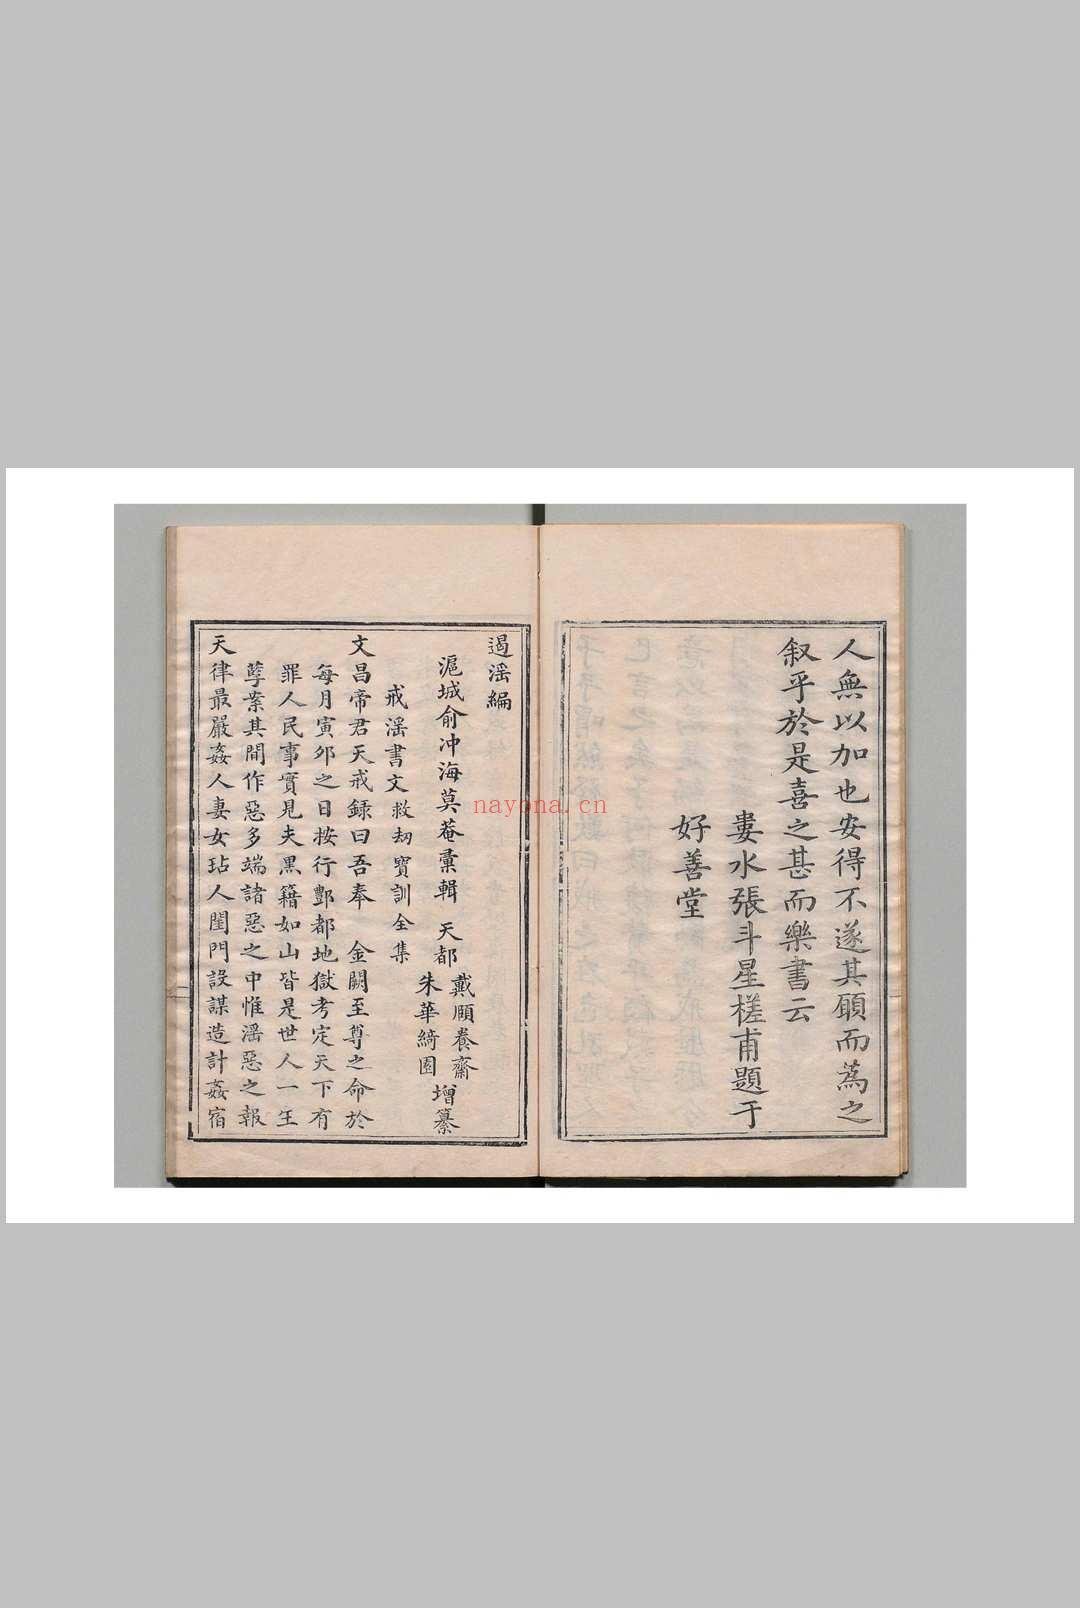 人無以加也安得不遂其願而為之
叙乎於是喜之甚而樂書云
婁水張斗星槎甫題于
好善堂
遏滛編
滬城俞冲海莫菴彚輯 天都 戴願養齋 朱華綺園 增纂
戒滛書文 救刼寶訓全集
文昌帝君天戒録曰吾奉 金闕至尊之命於
每月寅夘之日按行酆都地獄考定天下有
罪人民事實見夫黒籍如山皆是世人一生
孽案其間作惡多端諸惡之中惟滛惡之報
天律最嚴姦人妻女玷人閨門設謀造計姦宿
nayona.cn